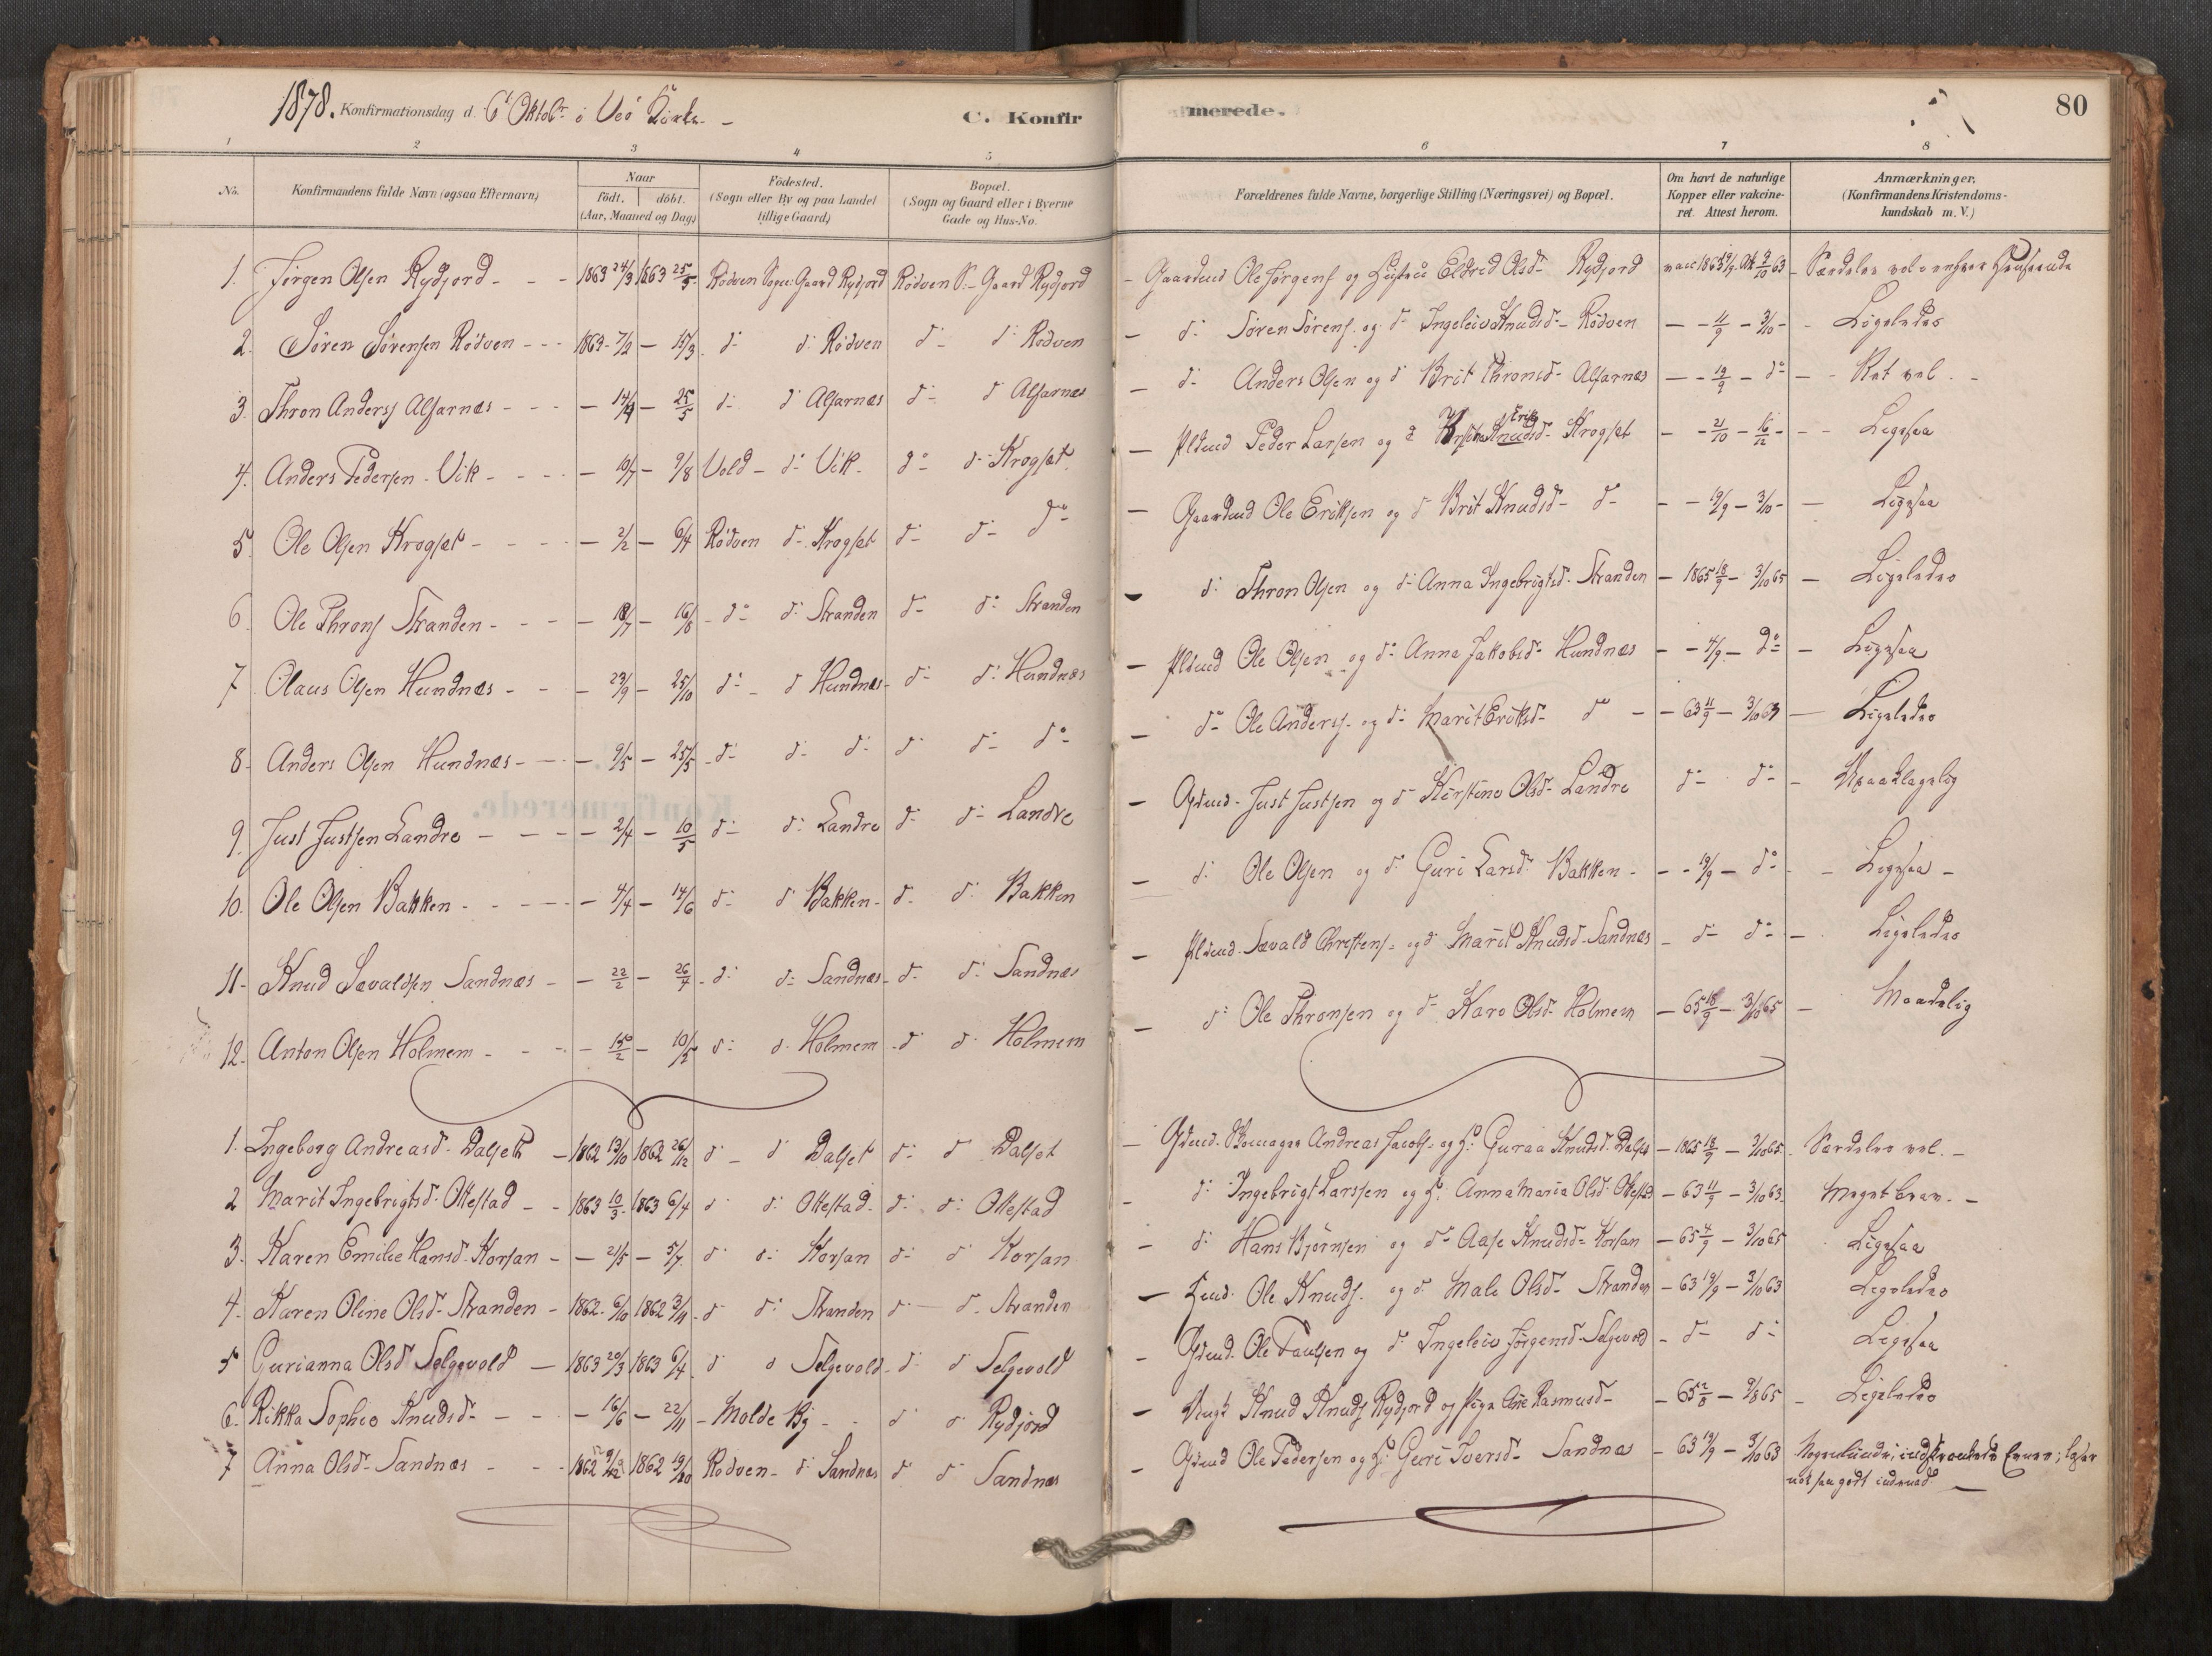 1878. Konfirmationsdag d. 6t Oktobr i Veö Kirke. –
C. Konfirmerede.
80
1 2 3 4 5 6 7 8
No.
Konfirmandens fulde Navn (ogsaa Efternavn)
Naar
födt. döbt.
(Aar, Maaned og Dag)
Födested.
(Sogn eller By og paa Landet
tillige Gaard)
Bopæl.
(Sogn og Gaard eller i Byerne
Gade og Hus-No.
Forældrenes fulde Navne, borgerlige Stilling (Næringsvei) og Bopæl.
Om havt de naturlige
Kopper eller vakcine-
ret. Attest herom.
Anmærkninger.
(Konfirmandens Kristendoms-
kundskab m. V.)
1. Jörgen Olsen Rydjord - - - 1863 24/3 1863 25/5 Rödven Sogn: Gaard Rydjord Rödven S:- Gaard Rydjord - Gaardmd Ole Jörgens og Hustru Eldred Olsd- Rydjord vacc 1863 19/9. Att 3/10 63 - Særdeles vel i enhver Henseende
2. Sören Sörensen Rödven - - - 1863 7/2 - 15/3 d: d: Rödven d: d: Rödven - d: Sören Sörens. og d: Ingeleiv Knudsd- Rödven - - 11/9 - 3/10 - Ligeledes
3. Thron Anders Alfarnæs - - - - 14/4 - 25/5 d: d Alfarnæs d: d Alfarnæs - d: Anders Olsen og d Brit Thronsd- Alfarnæs - - 19/9 - do - - Ret vel. -
4. Anders Pedersen Vik - - - - 10/7 - 9/8 Vold - d: Vik. do d: Krogsæt. - Pldmd Peder Larsen og d Knudsd- Eriks Krogsæt - - 21/10 - 16/12 - - - Ligesaa
5. Ole Olsen Krogsæt - - - - 2/2 - 6/4 Rödven d: Krogsæt d: d: do - Gaardmd Ole Eriksen og d Brit Knudsd- d: - - 19/9 - 3/10 - - Ligesaa
6. Ole Throns Stranden - - - - 18/7 - 16/8 - do d: Stranden d: do Stranden - d: Thron Olsen og d: Anna Ingebrigtsd. Stranden - 1865 18/9 - 3/10 65 - Ligeledes
7 Olaus Olsen Hundnæs - - - 23/9 - 25/10 d: - d Hundnæs - d: d: Hundnæs - Pldmd Ole Olsen og d: Anna Jakobsd- Hundnæs - - 4/9 - do - Ligesaa
8. Anders Olsen Hundnæs - - - 9/5 - 25/5 - d: d: d: d: d: do - do Ole Anders. og d: Marit Eriksd- do - - 63 11/9 - 3/10 63 - Ligeledes
9. Just Justsen Landre - - - - 2/4 - 10/5 d: d: Landre d: d: Landre - Gdmd. Just Justsen og d: Kirstine Olsd- Landre d: d: - Upaaklagelig
10. Ole Olsen Bakken - - - - 4/4 - 14/6 d: d Bakken - d. d: Bakken - d: Ole Olsen og d: Guri Larsd: Bakken - - - 19/9 - do - Ligesaa -
11- Knud Sævaldsen Sandnæs - - 22/2 - 26/4 - d: d: Sandnæs - d: d: Sandnæs - Pldmd. Sævald Christens. og d Marit Knudsd- Sandnæs - d: d: - Ligeledes
12. Anton Olsen Holmem - - - - 15/2 - 10/5 d: d. Holmem - d d. Holmem - d: Ole Thronsen og d: Karo Olsd- Holmem - 65 18/9 - 3/10 65 - Maadelig
1. Ingeborg Andreasd. Dalset - 1862 13/10 1862 26/12 d - d Dalset d: d Dalset - Gdmd. Andreas Jacobs. og H: Guraa Knudsd. Dalset - 1865 18/9 - 3/10 65. Særdeles vel. -
2 Marit Ingebrigtsd: Ottestad - - 1863 10/3 1863 6/4 d d: Ottestad - d: d: Ottestad - d: Ingebrigt Larssen og H: Anna Maria Olsd. Ottestad - 63 11/9 - 3/10 63. Meget brav. -
3. Karen Emilie Hansd. Korsan - - 21/5 - 5/7. d d: Korsan d: d Korsan - d: Hans Björnsen og d: Aase Knudsd- Korsan - 65 4/9 - 3/10 65 Ligesaa
4. Karen Oline Olsd- Stranden - 1862. 6/10 1862 3/11 - d d: Stranden d - d. Stranden - Hmd. Ole Knuds. og d: Male Olsd- Stranden - 63 19/9 - 3/10 63 Ligeledes
5 Gurianna Olsd Selgevold - 1863 20/3 1863 6/4 d d Selgevold - d: d Selgevold - Gdmd. Ole Paulsen og d: Ingeleiv Jörgensd- Selgevold - d: d: Ligesaa
6. Rikka Sophie Knudsd- - - - 16/6 - 22/11 - Molde By - - d d Rydjord - Ungk Knud Knuds Rydjord og Pige Rasmusd- - 65 2/8 - 9/8 65 - Ligeledes
7 Anna Olsd- Sandnæs - - - 1862 1862 19/10 Rödven - d: Sandnæs d d Sandnæs - Gdmd Ole Pedersen og H: Guri Iversd- Sandnæs - 63 19/9 - 3/10 63 indskrænkede Evner; læser
nok saa godt indenad -